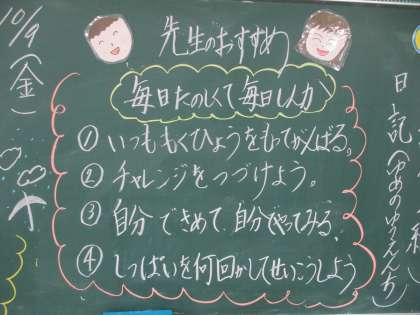 10/9(金)
先生のおすすめ
毎日たのしくて毎日しんか
① いつももくひょうをもってがんばる。
② チャレンジをつづけよう。
③ 自分できめて、自分でやってみる、
④ しっぱいを何回かしてせいこうしよう
日記(ゆめのゆうえんち)